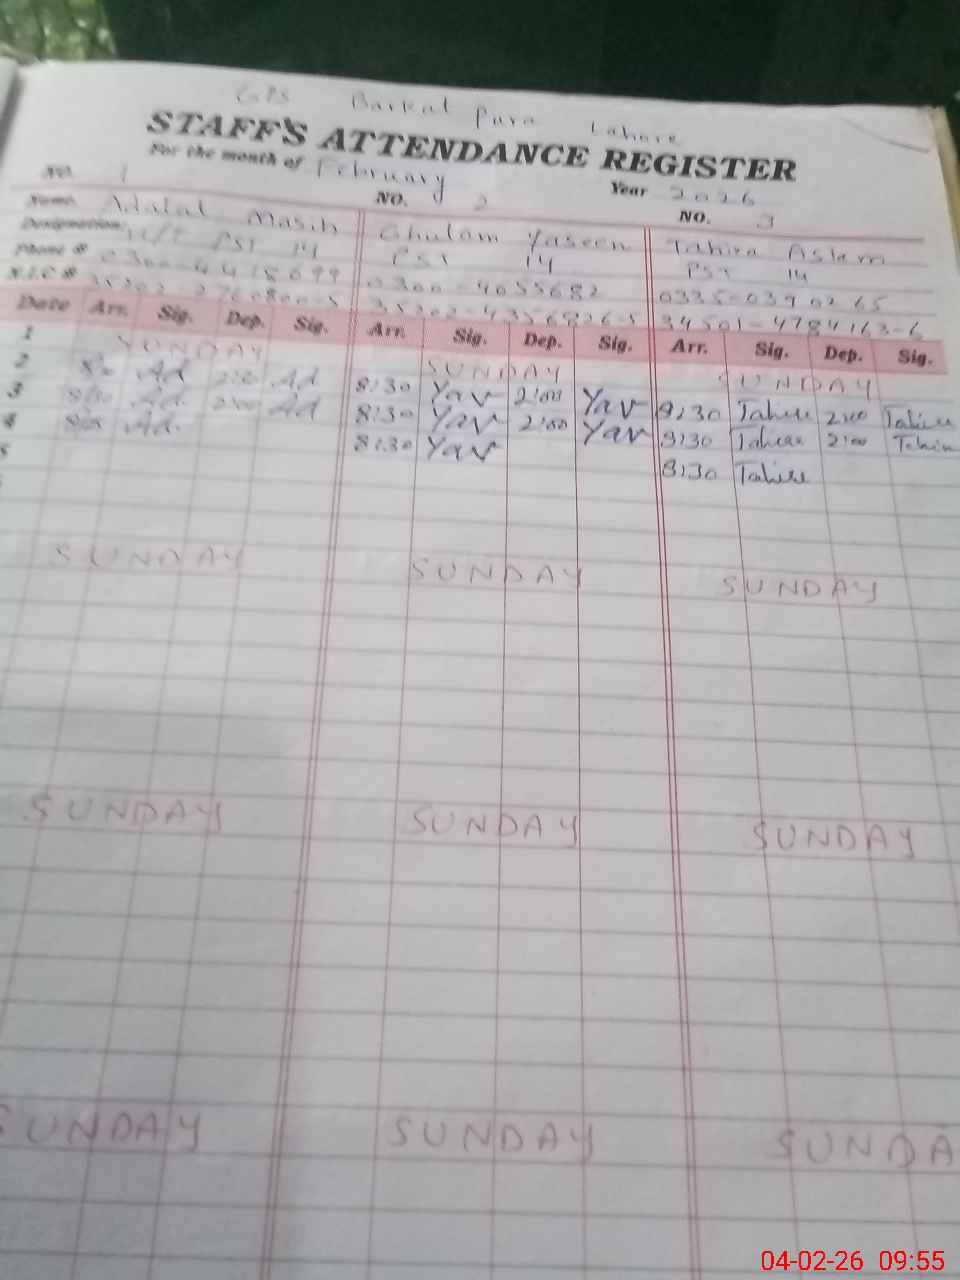 GPS Barkat Pura Lahore
STAFF'S ATTENDANCE REGISTER
For the month of February Year 2026
NO. 1 NO. 2 NO. 3
Name. Adalat Masih Ghulam Yaseen Tahira Aslam
Designation: H/T PST 14 PST 14 PST 14
Phone # 0300-4418699 0300-4055682 0335-0390265
N.I.C # 35202-4356826-5 34501-4784163-6
Date Arr. Sig. Dep. Sig. Arr. Sig. Dep. Sig. Arr. Sig. Dep. Sig.
1 SUNDAY SUNDAY SUNDAY
2 Ad Ad 8:30 Yav 2:00 Yav 8:30 Tahira 2:00 Tahira
3 Ad 2:00 Ad 8:30 Yav 2:00 Yav 8:30 Tahira 2:00 Tahira
4 Ad 8:30 Yav 8:30 Tahira
5
SUNDAY SUNDAY SUNDAY
SUNDAY SUNDAY SUNDAY
SUNDAY SUNDAY SUNDA
04-02-26 09:55